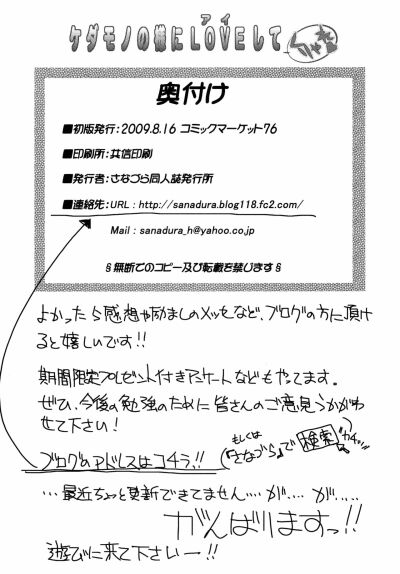 アイ
ケダモノの様にLOVEして
くりゃれ
奥付け
■初版発行：2009.8.16 コミックマーケット76
■印刷所：共信印刷
■発行者：さなづら同人誌発行所
■連絡先：URL : http://sanadura.blog118.fc2.com/
Mail : sanadura_h@yahoo.co.jp
§無断でのコピー及び転載を禁じます§
よかったら感想や励ましのメッセなど、ブログの方に頂け
ると嬉しいです!!
期間限定プレゼント付きアンケートなどもやってます。
ぜひ、今後の勉強のために皆さんのご意見うかがわ
せて下さい!
ブログのアドレスはコチラ!!
(もしくは
『さなづら』で 検索 カチッ)
…最近ちょっと更新できてません…が…。が…..
がんばりますっ!!
遊びに来て下さいー!!